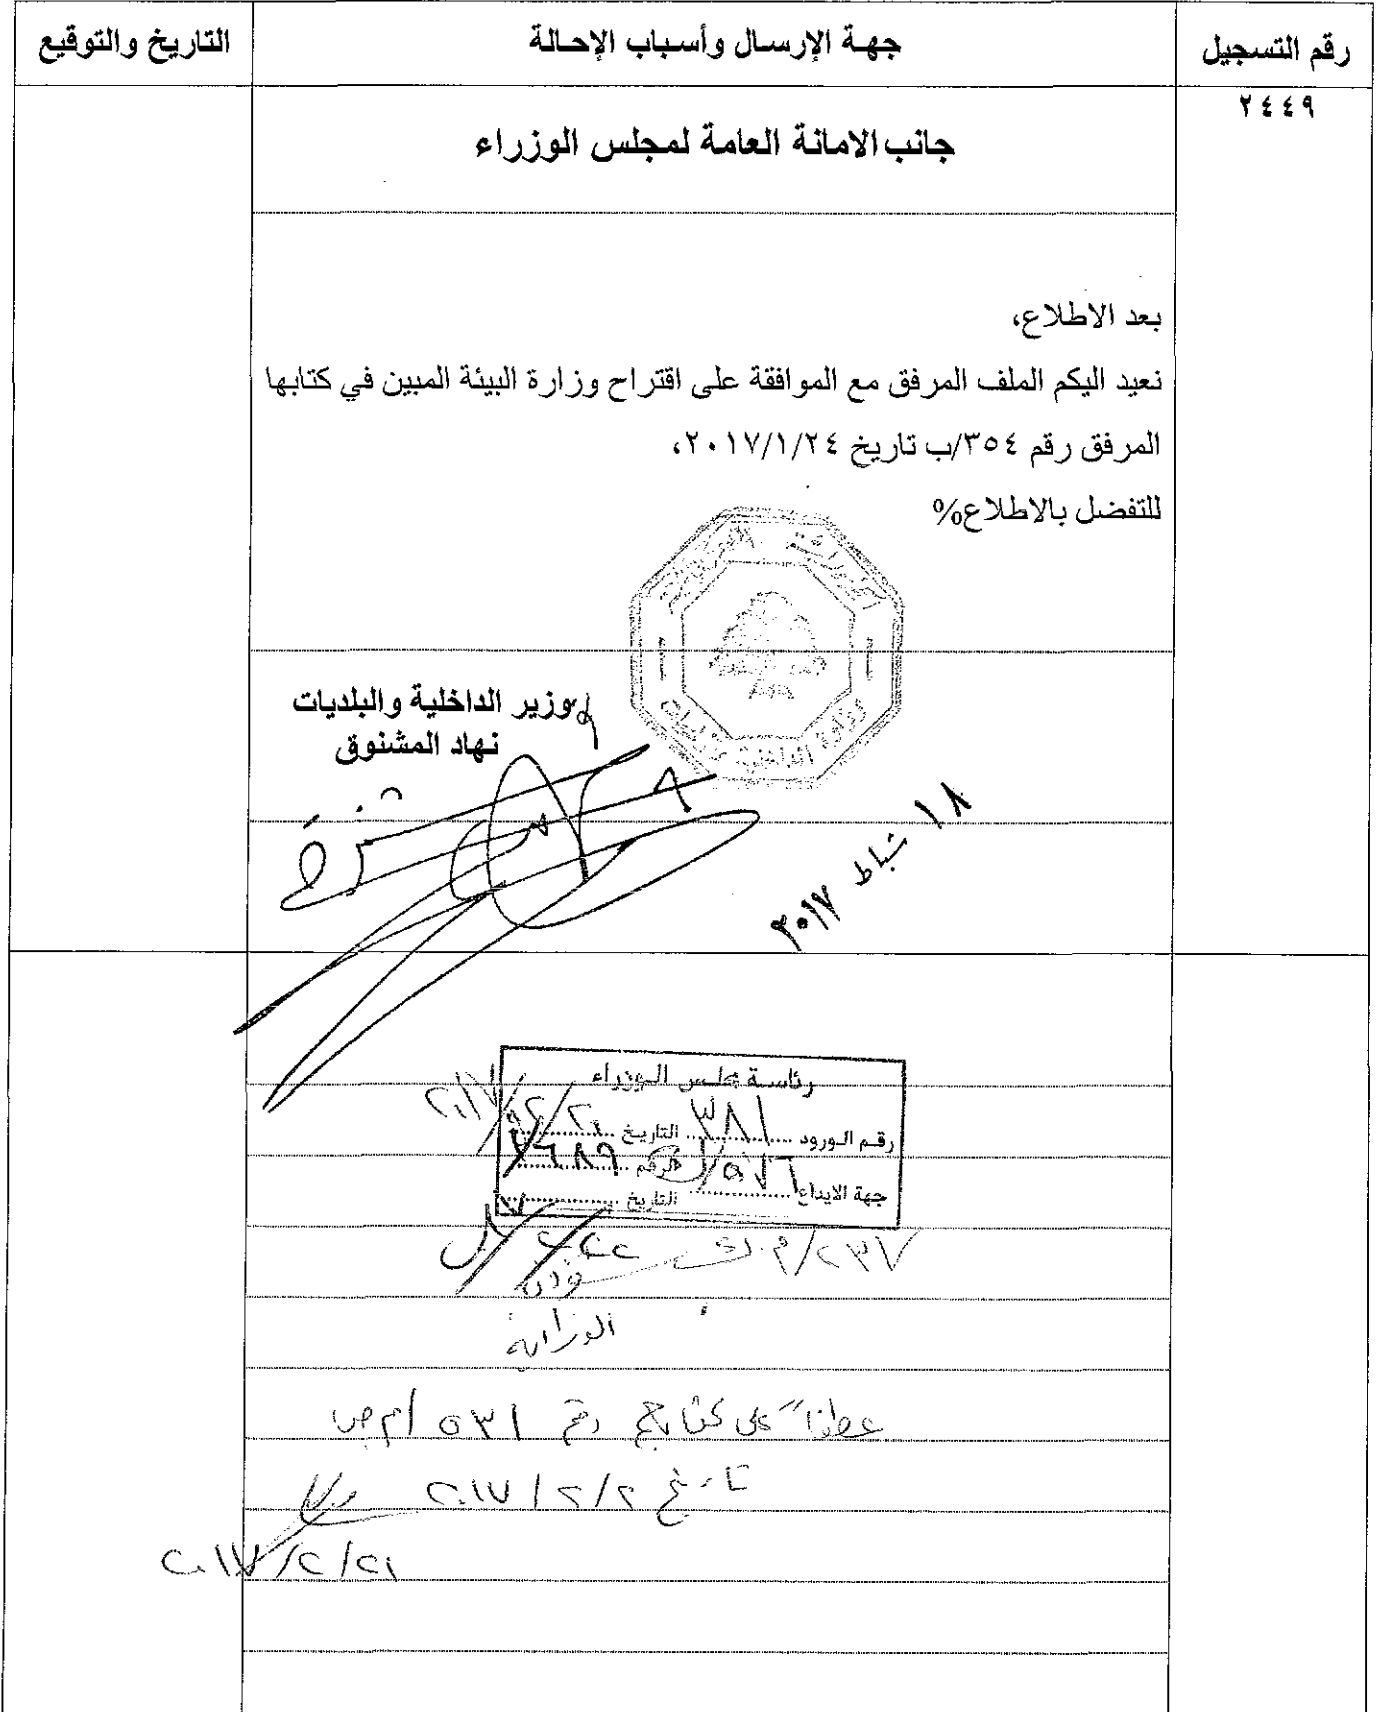 رقم التسجيل
جهة الإرسال وأسباب الإحالة
التاريخ والتوقيع
٢٤٤٩
جانب الامانة العامة لمجلس الوزراء
بعد الاطلاع،
نعيد اليكم الملف المرفق مع الموافقة على اقتراح وزارة البيئة المبين في كتابها
المرفق رقم ٣٥٤/ب تاريخ ٢٠١٧/١/٢٤،
للتفضل بالاطلاع%
وزارة الداخلية
وزير الداخلية والبلديات
نهاد المشنوق
١٨ شباط ٢٠١٧
رئاسة مجلس الوزراء
رقم الورود ٣٨١ التاريخ
جهة الايداع
التاريخ
عطفاً على كتابكم رقم ٥٣١/م ص
تاريخ ٢٠١٧/٢/٢
٢٠١٧/٢/٢١